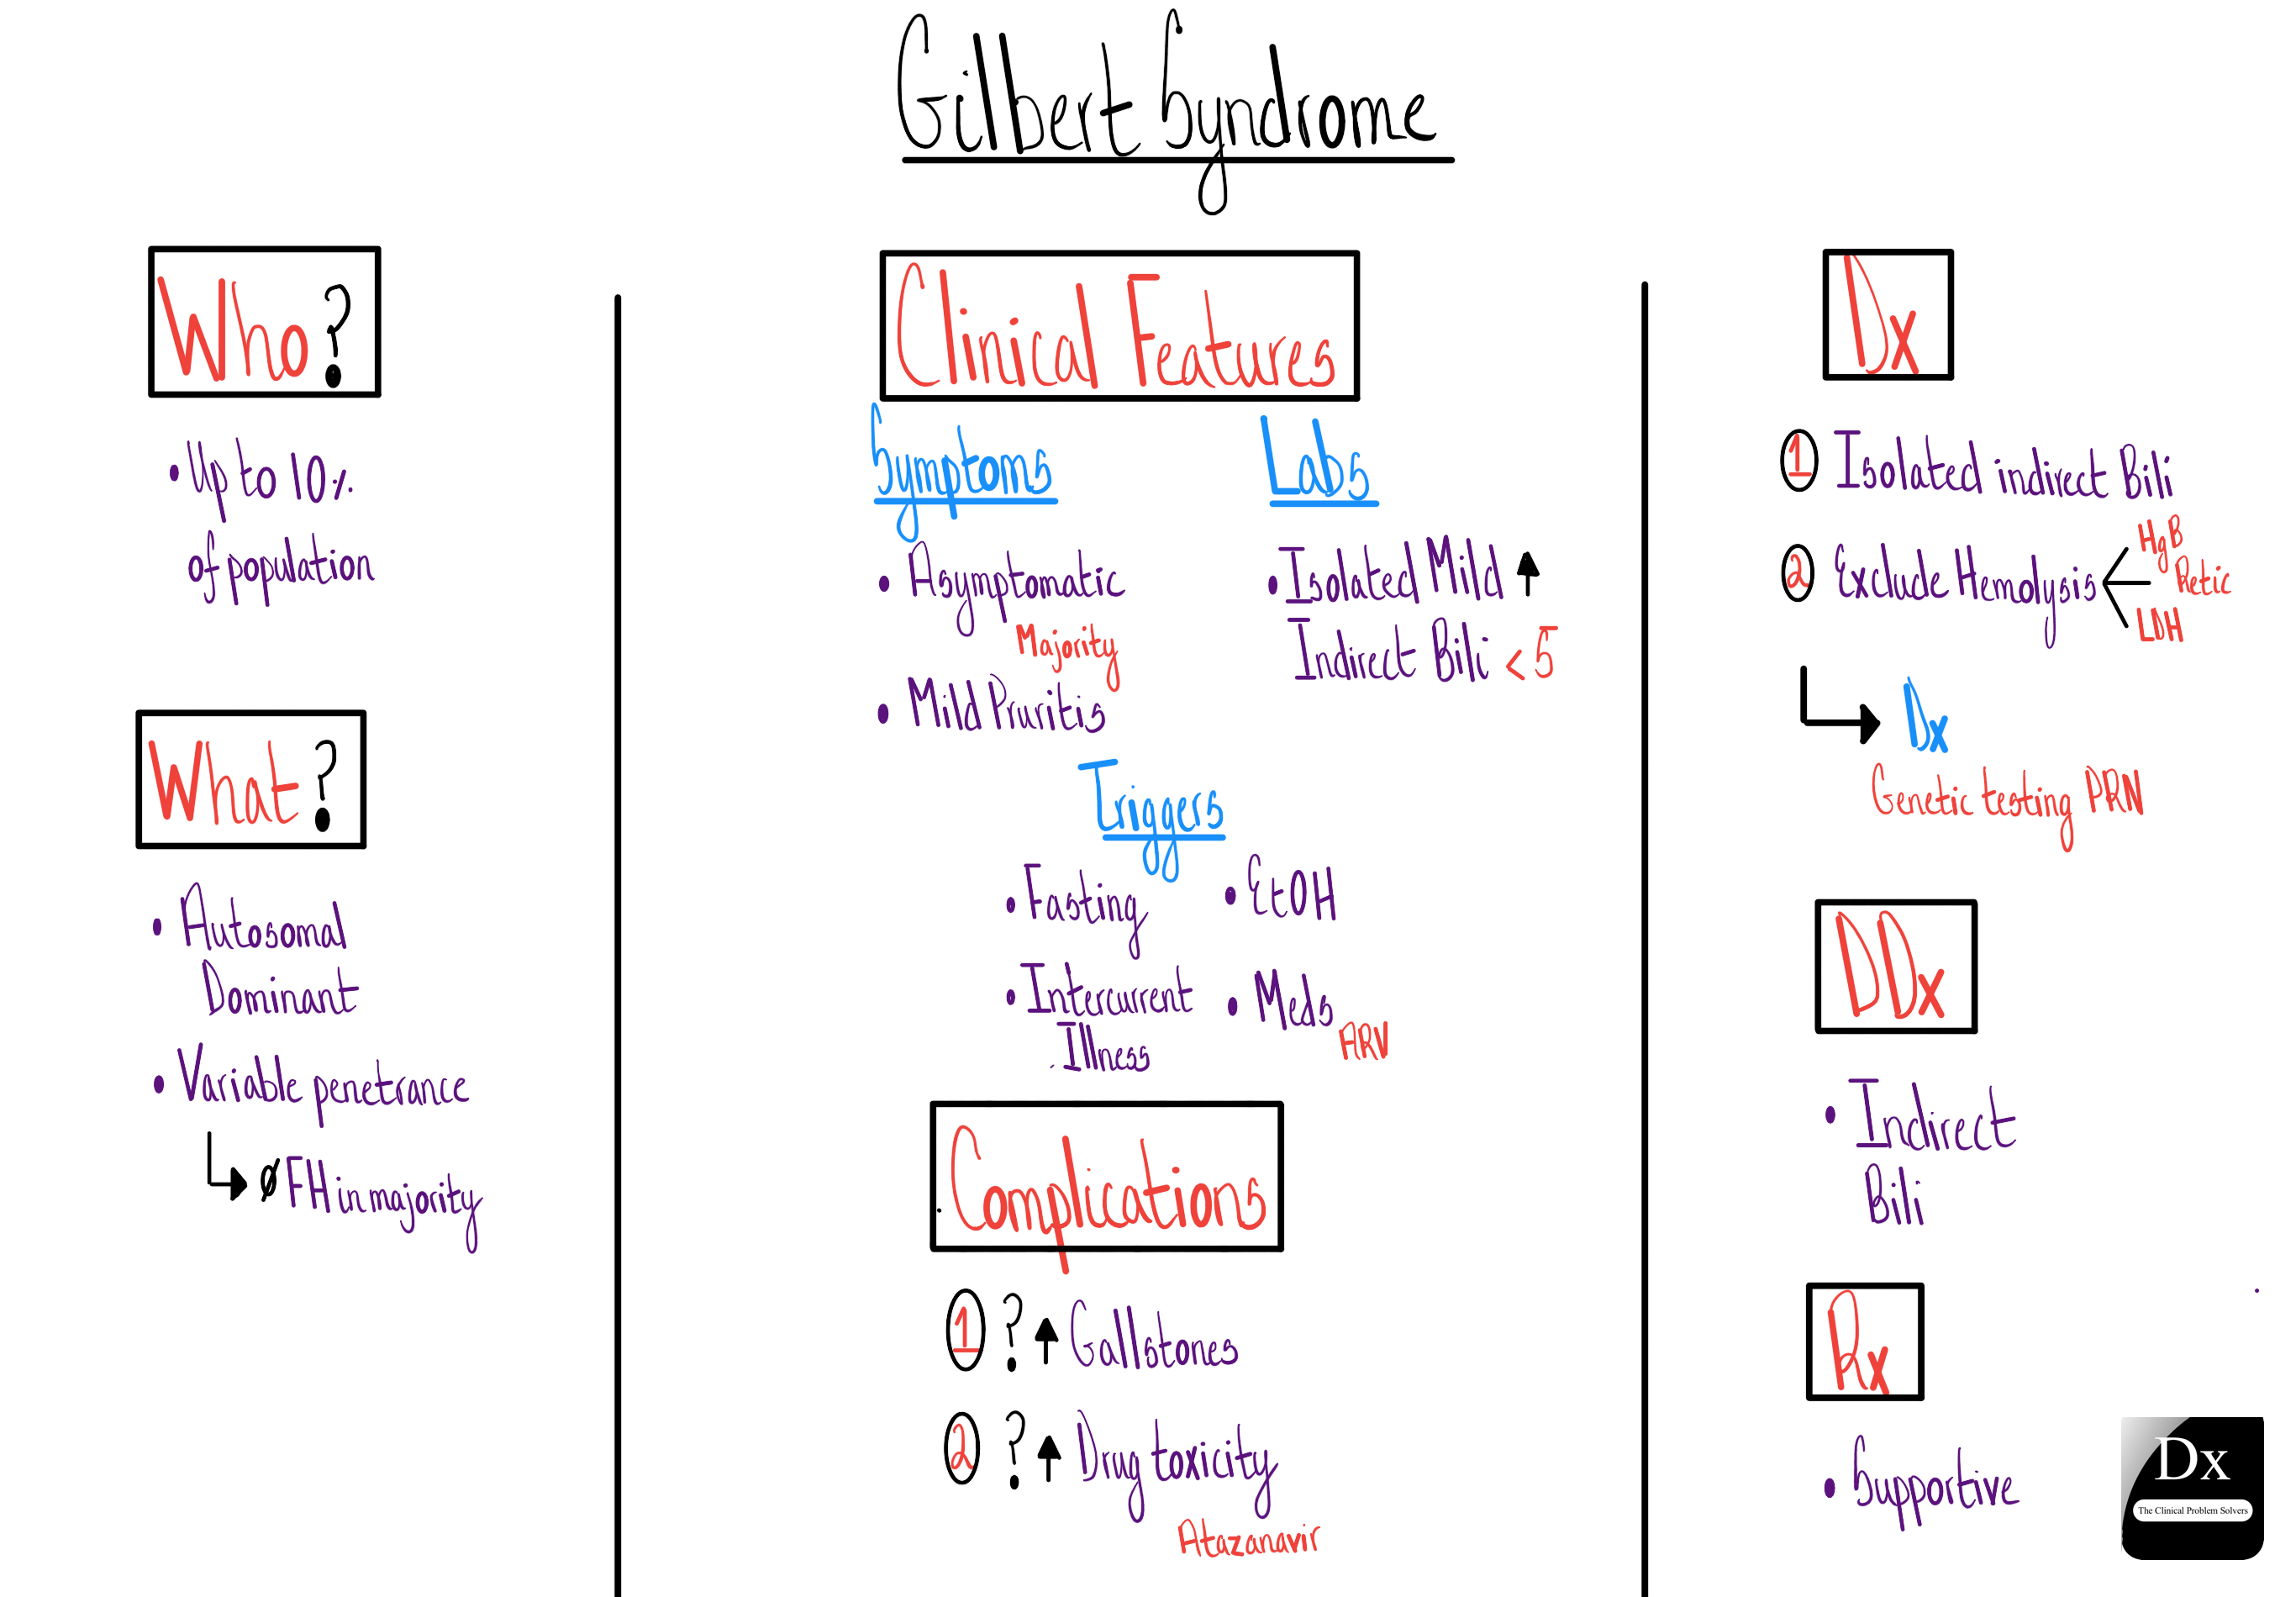 Gilbert Syndrome
Who?
• Up to 10%
of population
What?
• Autosomal
Dominant
• Variable penetrance
ø FH in majority
Clinical Features
Symptoms
• Asymptomatic
Majority
• Mild Pruritis
Labs
• Isolated Mild ↑
Indirect Bili < 5
Triggers
• Fasting
• Intercurrent
Illness
• EtOH
• Meds
ARV
Complications
1 ? ↑ Gallstones
2 ? ↑ Drug toxicity
Atazanavir
Dx
1 Isolated indirect Bili
2 Exclude Hemolysis
HgB
Retic
LDH
Dx
Genetic testing PRN
DDx
• Indirect
Bili
Rx
• Supportive
Dx
The Clinical Problem Solvers